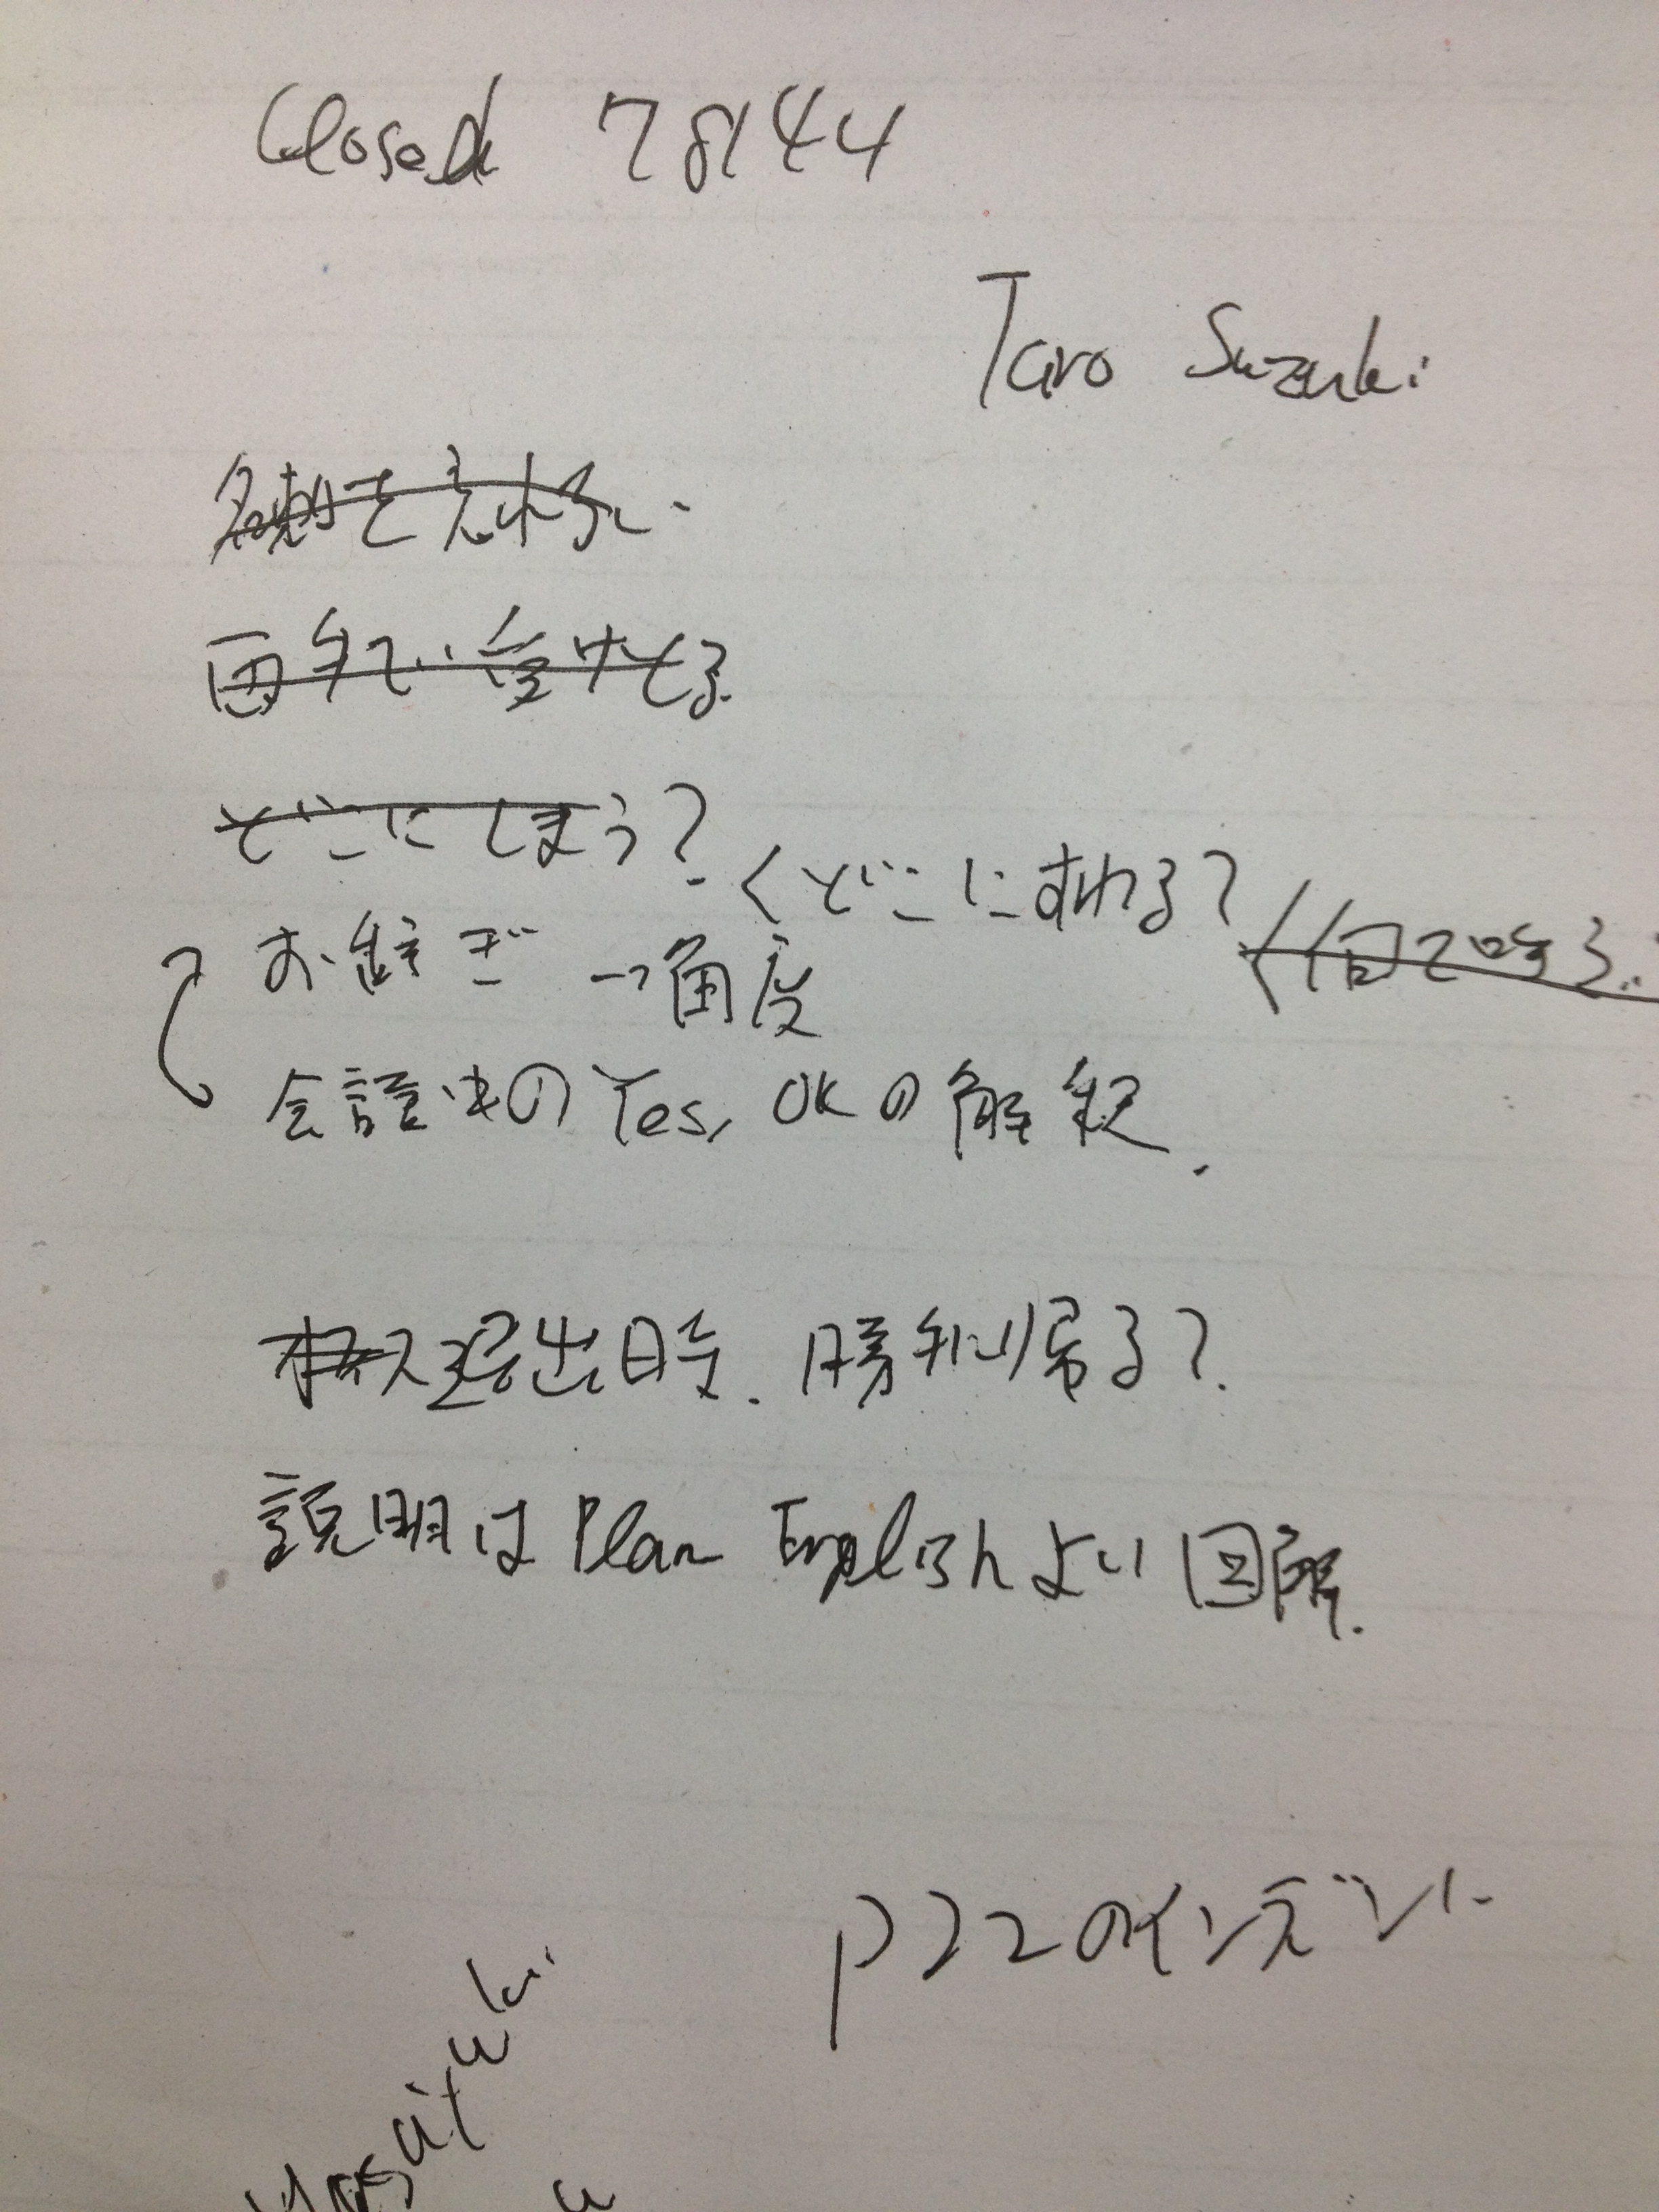 Closed 78144
Taro Suzuki
名刺を忘れない
両手で受けとる
どこにしまう?
<どこにすわる?
お辞ぎ→角度
会議中のYes, OKの解釈.
退出時. 勝手に帰る?
説明は Plan English よい 図解.
P22のインデント